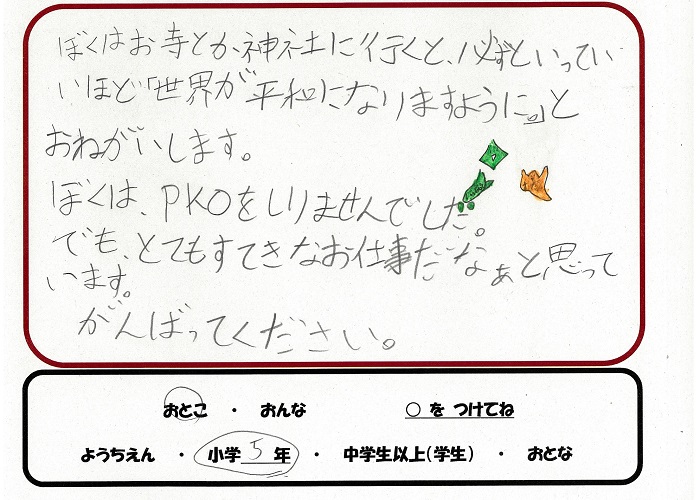 ぼくはお寺とか、神社に行くと、必ずといってい
いほど「世界が平和になりますように。」と
おねがいします。
ぼくは、PKOをしりませんでした。
でも、とてもすてきなお仕事だなぁと思って
います。
がんばってください。
おとこ ・ おんな ○ を つけてね
ようちえん ・ 小学 5 年 ・ 中学生以上(学生) ・ おとな